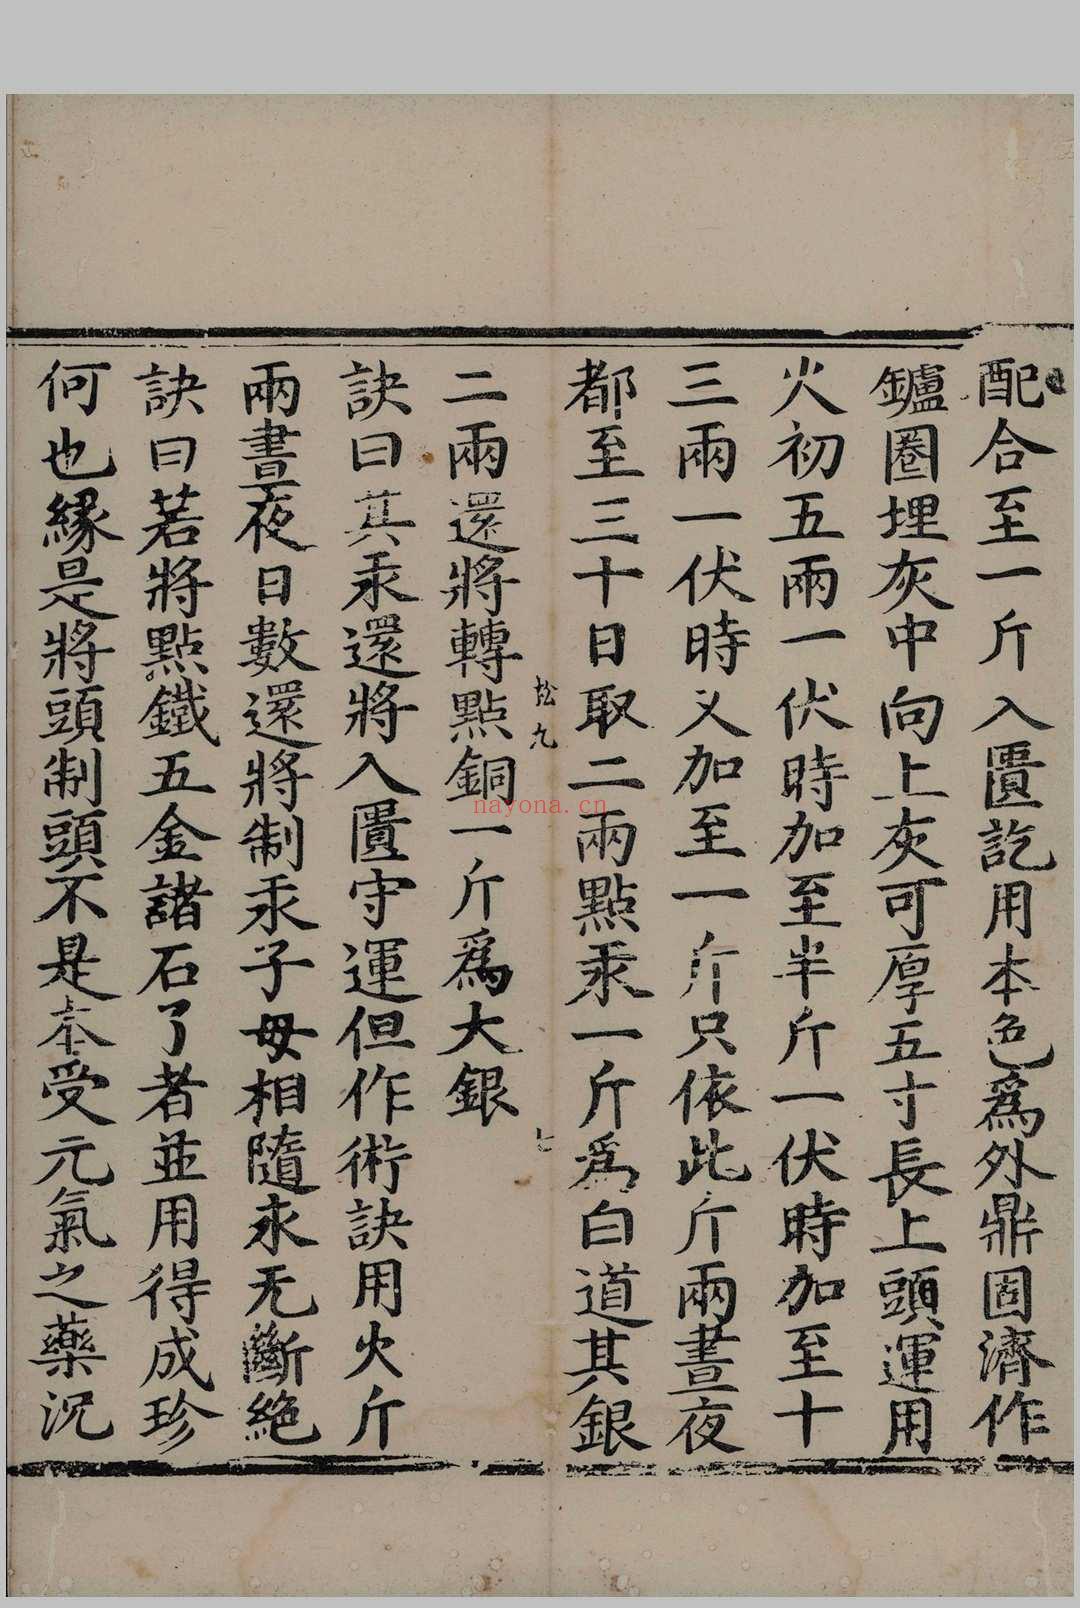 配合至一斤入匱訖用本色爲外鼎固濟作
鑪圈埋灰中向上灰可厚五寸長上頭運用
火初五兩一伏時加至半斤一伏時加至十
三兩一伏時又加至一斤只依此斤兩晝夜
都至三十日取二兩點汞一斤爲白道其銀
松九
七
二兩還將轉點銅一斤爲大銀
訣曰其汞還將入匱守運但作術訣用火斤
兩晝夜日數還將制汞子母相隨永无斷絕
訣曰若將點鐵五金諸石了者並用得成珍
何也緣是將頭制頭不是本受元氣之藥況
nayona.cn